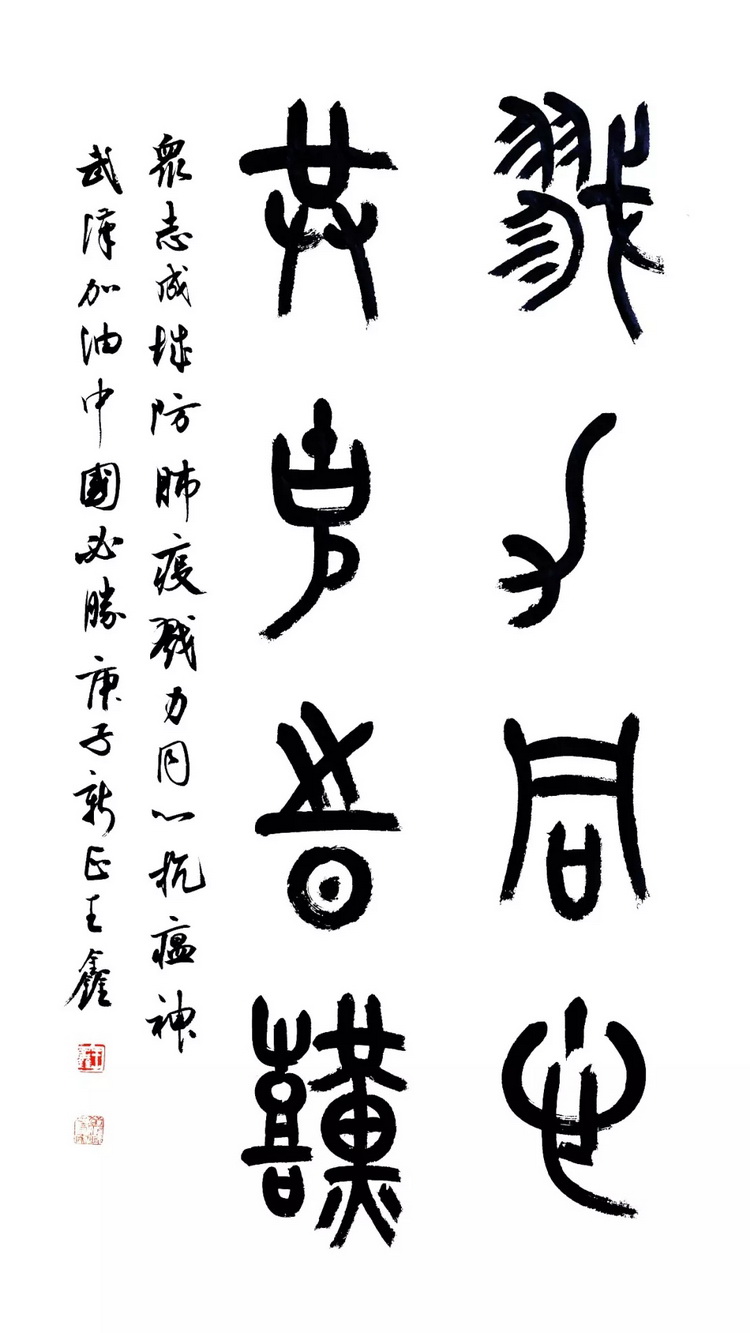 戮力同心
共克時艱
眾志成城防肺疫戮力同心抗瘟神
武漢加油中國必勝庚子新正王鑫